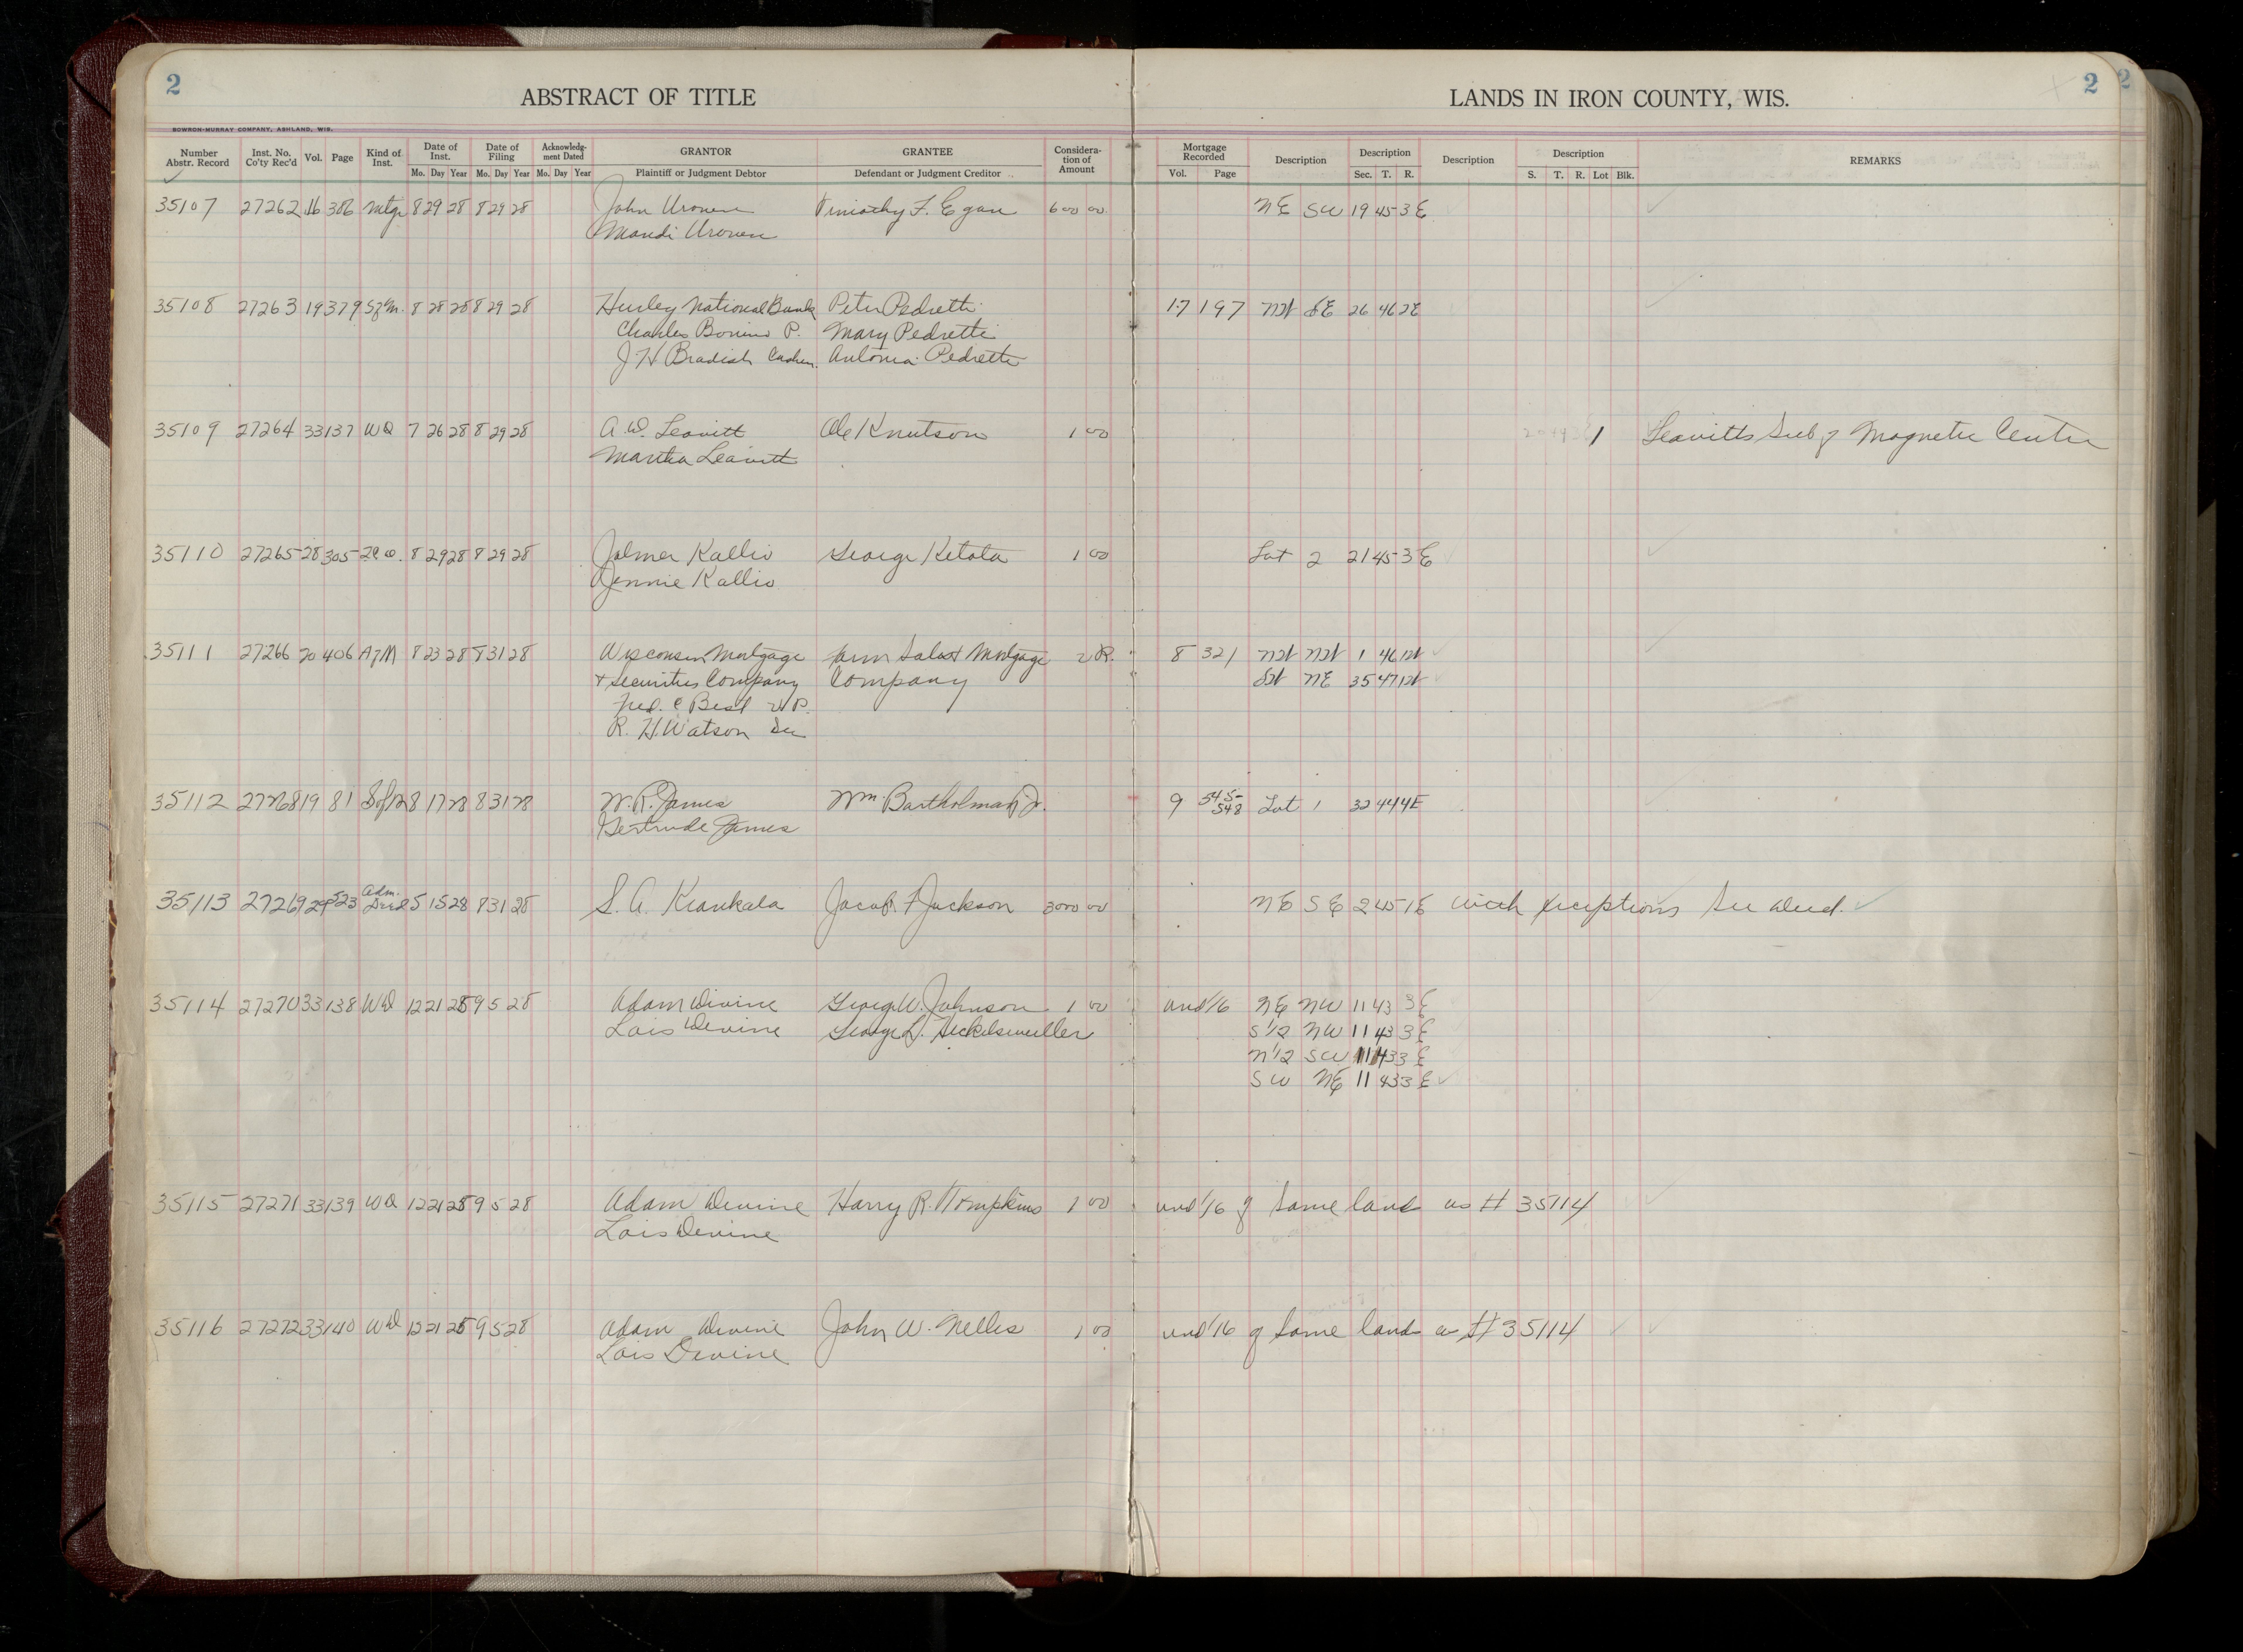 2
ABSTRACT OF TITLE
LANDS IN IRON COUNTY, WIS.
2
2
BOWRON-MURRAY COMPANY, ASHLAND, WIS.
Number Abstr. Record Inst. No. Co'ty Rec'd Vol. Page Kind of Inst. Date of Inst. Mo. Day Year Date of Filing Mo. Day Year Acknowledgment Dated Mo. Day Year GRANTOR Plaintiff or Judgment Debtor GRANTEE Defendant or Judgment Creditor Consideration of Amount Mortgage Recorded Vol. Page Description Description Sec. T. R. Description Description S. T. R. Lot Blk. REMARKS
35107 27262 16 386 Mtge 8 29 28 8 29 28 John Uronen Timothy F. Egan 600 00 NE SW 19 45 3E
Mandi Uronen
35108 27263 19 379 S of M. 8 28 28 8 29 28 Hurley National Bank Peter Pedretti 17 197 NW SE 26 46 2E
Charles Bonino P. Mary Pedretti
J H Bradish Cashier. Antonia Pedretti
35109 27264 33 137 WD 7 26 28 8 29 28 A. W. Leavitt Ole Knutson 1 00 1 Leavitts Sub of Magnetic Center
Martha Leavitt
35110 27265 28 305 2C D. 8 29 28 8 29 28 Jalmer Kallio George Ketola 1 00 Lot 2 21 45 3E
Jennie Kallio
35111 27266 20 406 A of M 8 23 28 8 31 28 Wisconsin Mortgage Farm Sales & Mortgage V R. 8 321 NW NW 1 46 1W
& Securities Company Company SW NE 35 47 1W
Fred. C Best V P.
R. H. Watson Sec
35112 27268 19 81 S of M 8 17 28 8 31 28 W. R. James Wm. Bartholman Jr. 9 545-548 Lot 1 32 44 4E
Gertrude James
35113 27269 29 523 Adm. Deed 5 15 28 8 31 28 S. A. Kraukala Jacob F Jackson 3000 00 NE SE 2 45 1E with exceptions See deed.
35114 27270 33 138 WD 12 21 25 9 5 28 Adam Devine George W. Johnson 1 00 und 1/6 NE NW 11 43 3E
Lois Devine S 1/2 NW 11 43 3E
N 1/2 SW 11 43 3E
SW NE 11 43 3E
35115 27271 33 139 WD 12 21 25 9 5 28 Adam Devine Harry R. Tompkins 1 00 und 1/6 of Same land as # 35114
Lois Devine
35116 27272 33 140 WD 12 21 25 9 5 28 Adam Devine John W. Nelles 1 00 und 1/6 of Same land as # 35114
Lois Devine